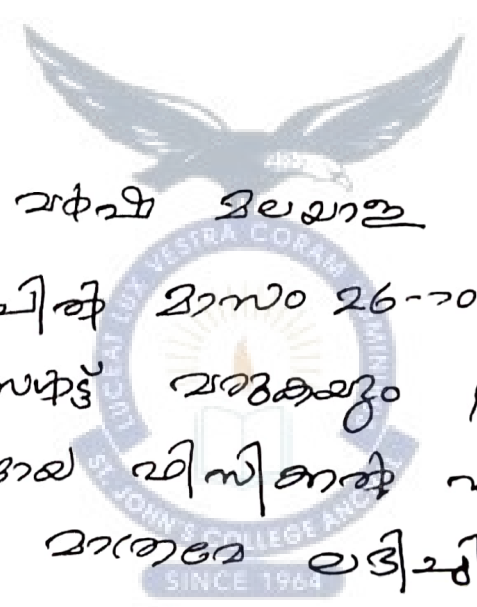 വർഷ മലയാള
പിൽ മാസം 26-ാം
സൾട്ട് വരുകയും
മായ ഫിസിക്കൽ
മാത്രമേ ലഭിച്ചി
LUCEAT LUX VESTRA CORAM
ST. JOHN'S COLLEGE ANCHAL
SINCE 1964